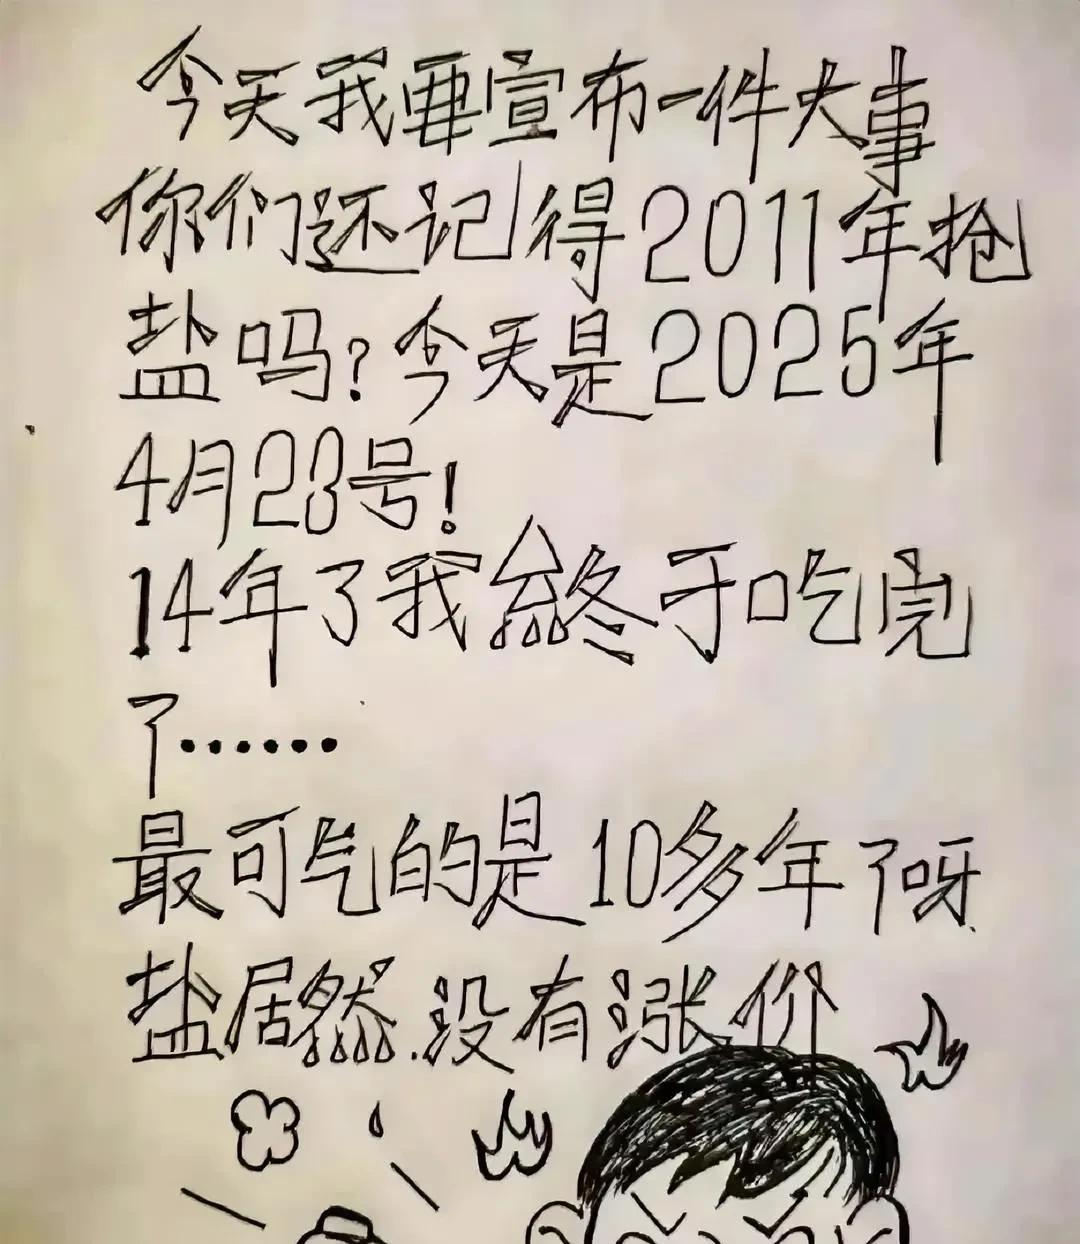 今天我要宣布一件大事
你们还记得2011年抢
盐吗?今天是2025年
4月23号!
14年了我終于吃完
了······
最可气的是10多年了呀
盐居然.没有涨价